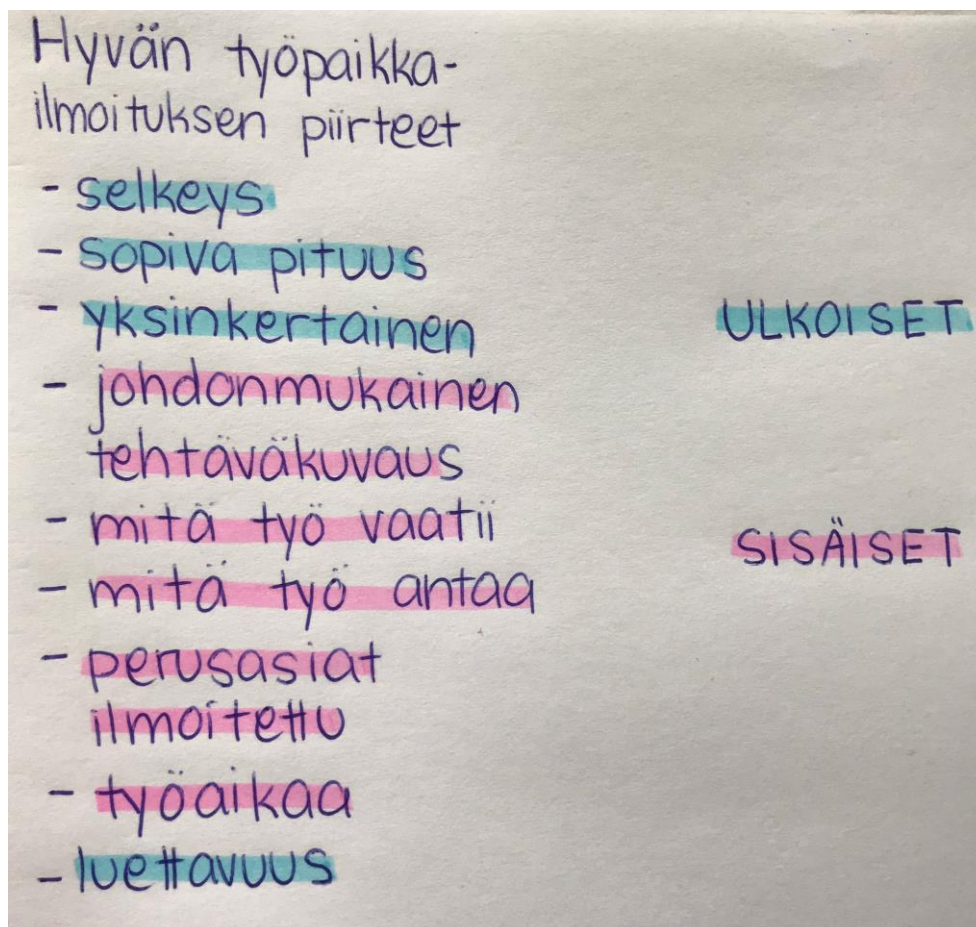 Hyvän työpaikka-
ilmoituksen piirteet
- selkeys
- sopiva pituus
- yksinkertainen
ULKOISET
- johdonmukainen
tehtäväkuvaus
- mitä työ vaatii
SISÄISET
- mitä työ antaa
- perusasiat
ilmoitettu
- työaikaa
- luettavuus